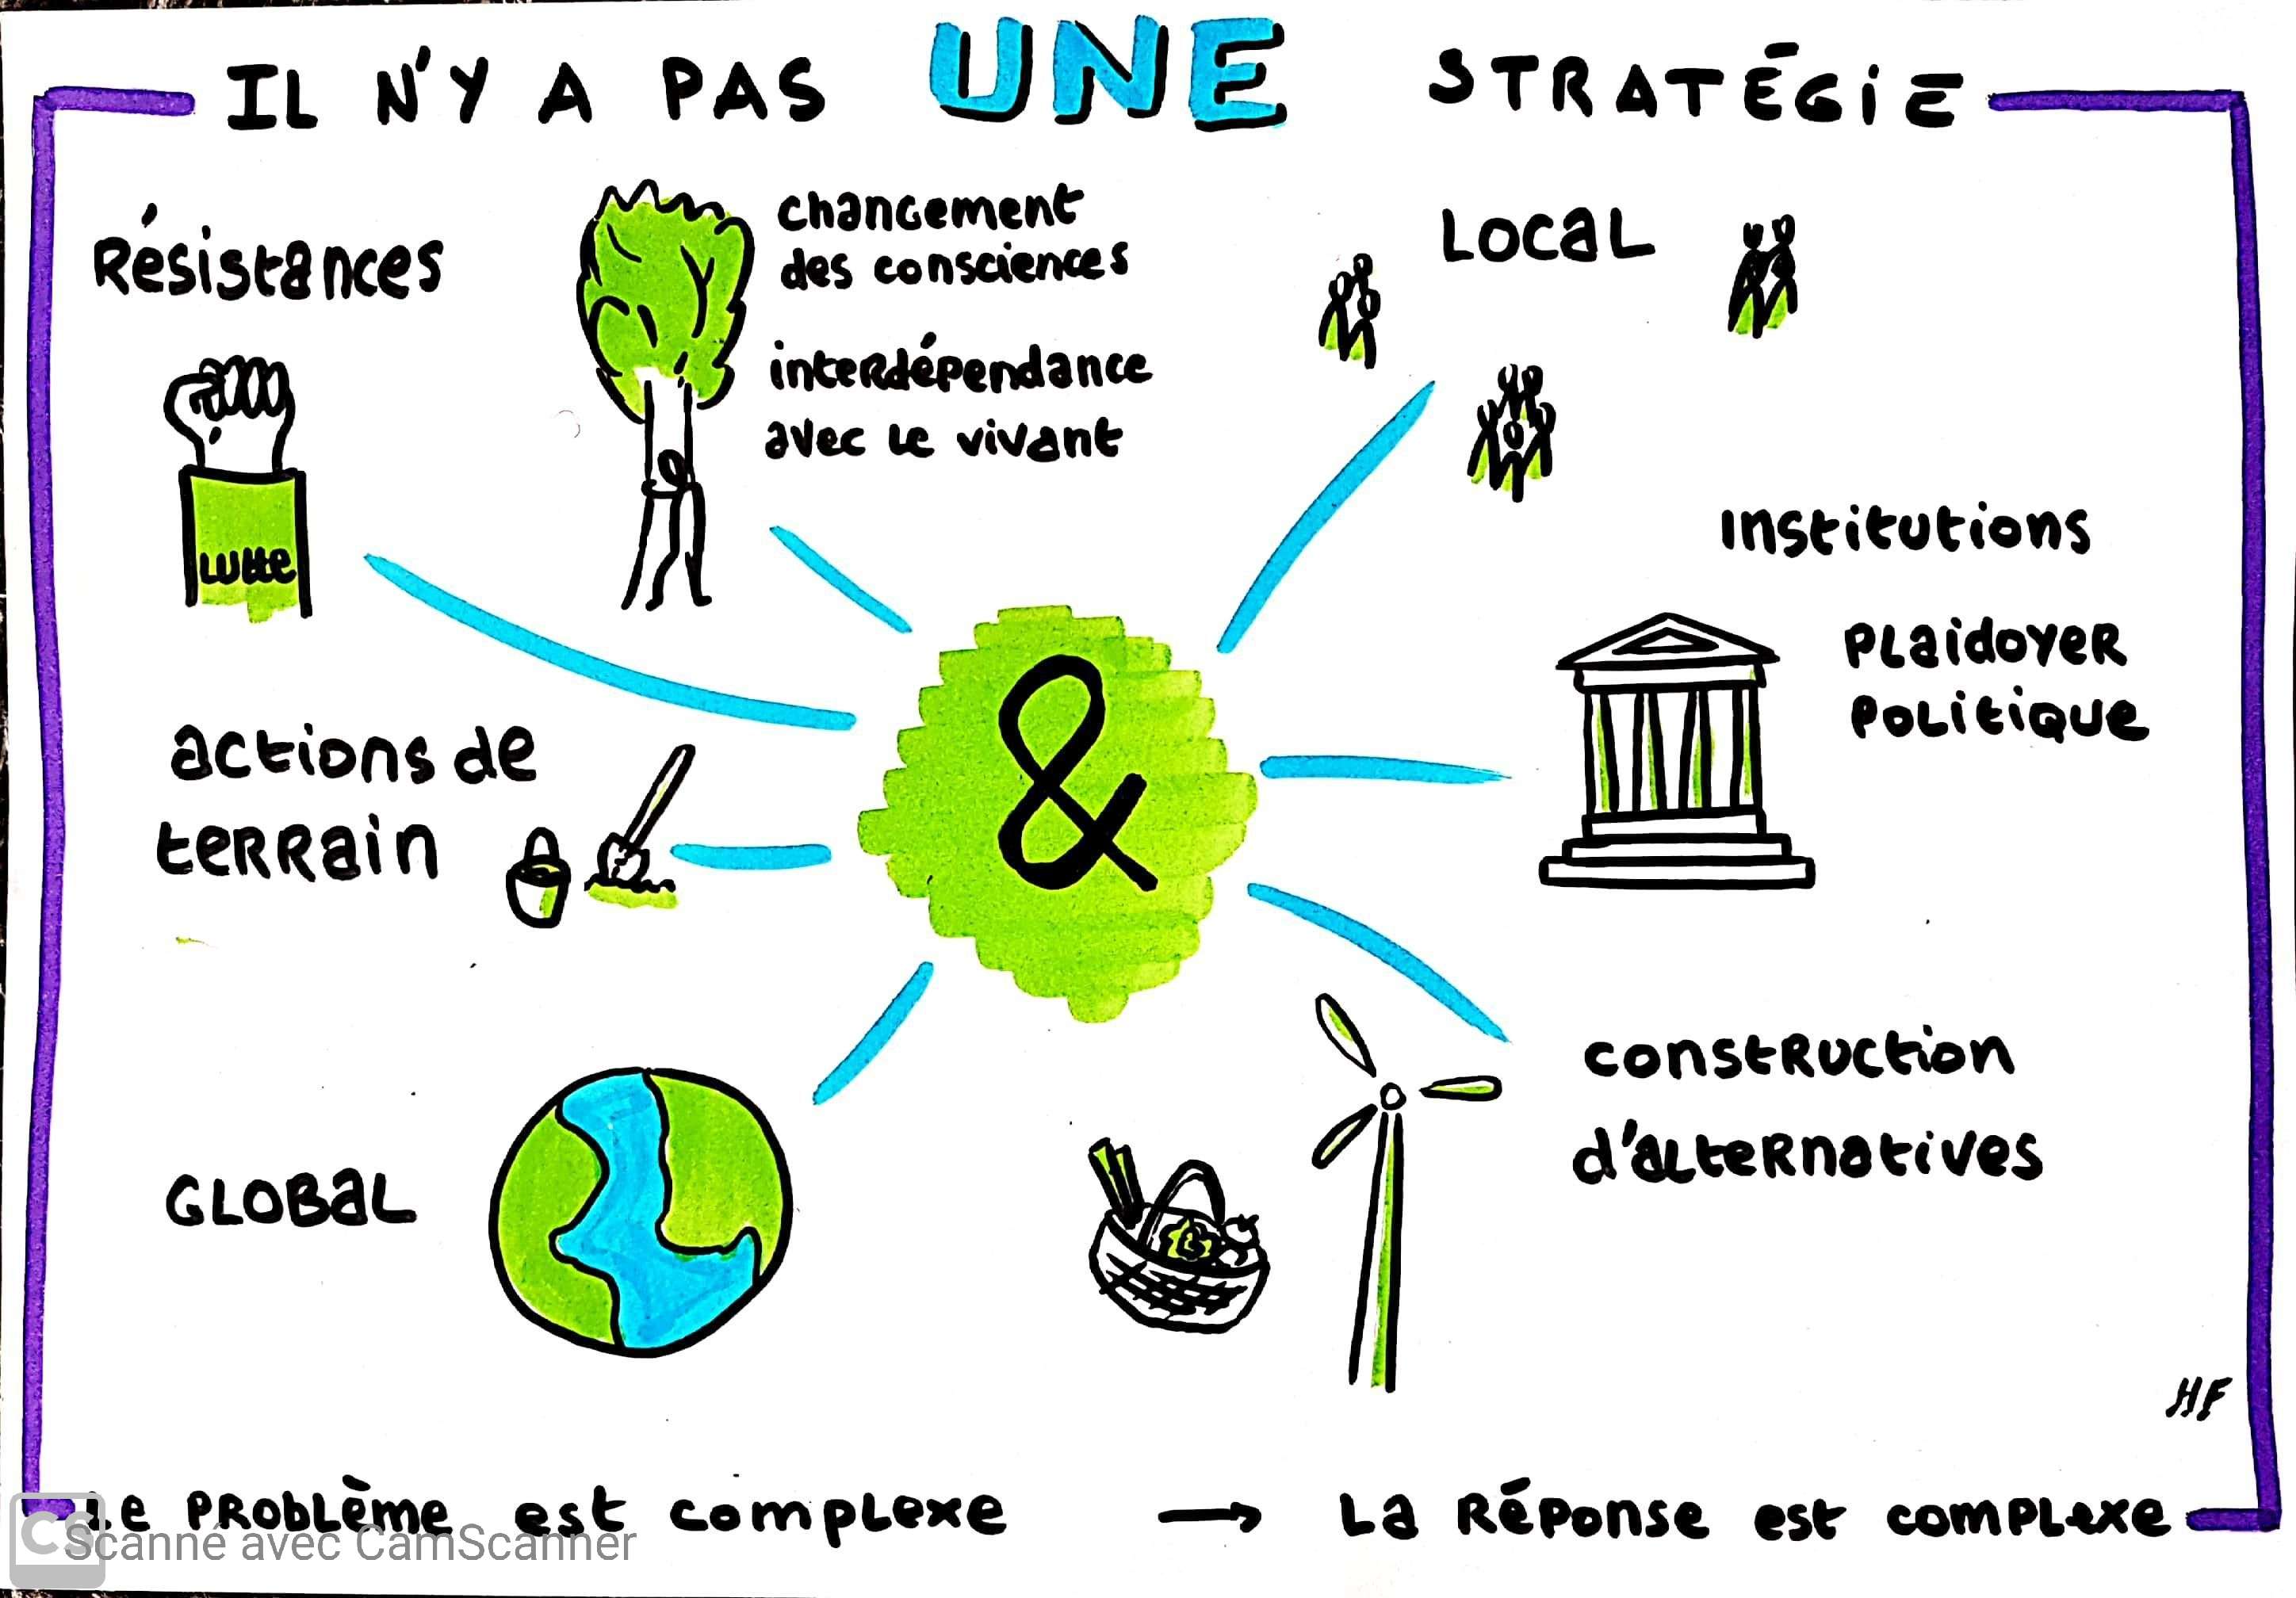 IL N'Y A PAS UNE STRATÉGIE
Résistances
Lutte
changement
des consciences
interdépendance
avec le vivant
LOCAL
Institutions
PLAIDOYER
POLITIQUE
actions de
terrain
&
GLOBAL
construction
d'alternatives
HF
Le problème est complexe → La réponse est complexe
CS Scanné avec CamScanner